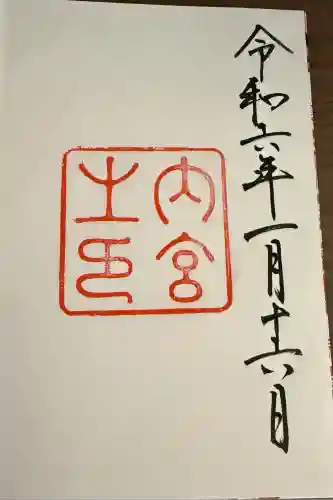 令和六年一月十六日
内宮
之印